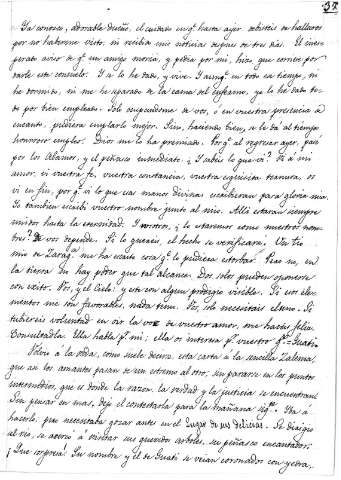 38
Ya conoce, adorable dueño, el cuidado en qe hasta ayer estarias de hallaros
por no haberme visto, ni recibido mis noticias después de tres dias. El inesperado
aviso de qe un amigo moria, y pedia por mi, hizo que corriese por
darle este consuelo. Y a lo he dado, y vive. Y aunqe en todo ese tiempo, ni
he dormido, ni me he separado de la cama del enfermo, ya lo he dado todo
por bien empleado. Solo ocupandome de vos, ó en vuestra presencia
encanto, pudiera emplarlo mejor. Sin, haciendo bien, se le dá al tiempo
honroso empleo. Dios me lo ha premiado. Porqe al regresar ayer, pasé
por los Alamos, y el peñasco inmediato. ¿Sabeis lo que ví? Vi á mi
amor, vi vuestra fé, vuestra constancia, vuestra esquisita ternura, os
vi en fin, porqe vi lo que esas manos divinas escribieron para gloria mia.
Yo tambien escribí vuestro nombre junto al mio. Alli estarán siempre
unidos hasta la eternidad. Y nosotros, ¿lo estaremos como nuestros nombres?
De vos depende. Si lo quereis, el hecho se verificará. Un tio
mio de Zaragª me ha escrito cosa qe lo pudiera estorbar. Pero no, en
la tierra no hay poder que tal alcance. Dos solos pueden oponerse
con exito. Vos, y el Cielo: y este con algun prodigio visible. Si esos elementos
me son favorables, nada temo. Vos, solo necesitais eterno. Si
tubierais voluntad en oir la voz de vuestro amor, me hariais feliz.
Consultadla. Ella habla pr mi; ella os interesa pr vuestro qe Guati
Volvió á la vida, como suele decirse, esta carta á la sencilla Zulema,
que asi los amantes pasan de un estremo al otro, sin pararse en los puntos
intermedios, que es donde la razon, la verdad y la justicia se encuentran.
Sin pensar en mas, dejó el contestarla para la mañana sigte. Iba á
hacerlo, pero necesitaba gozar antes en el Lugar de sus delicias. Se dirigió
al rio, se acercó á visitar sus queridos arboles, su peñasco encantador:
¡Que sorpresa! Su nombre y el de Guati se veian coronados con yedra,